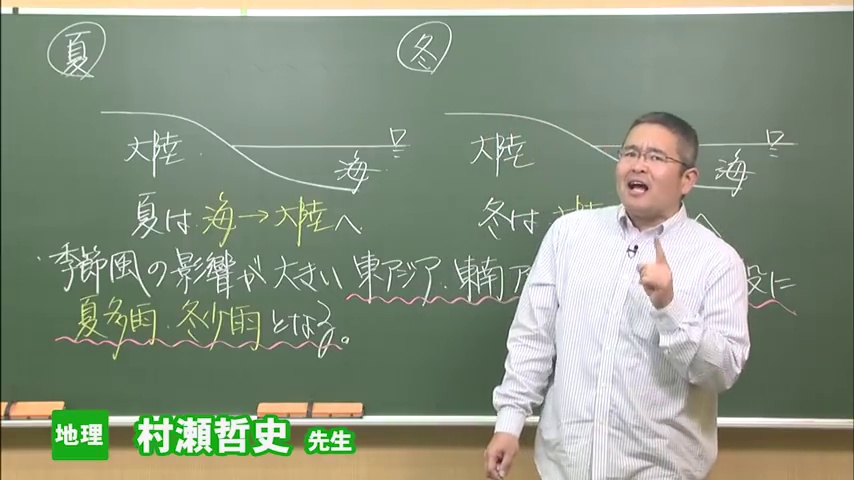 夏
冬
大陸
海
大陸
海
夏は 海→大陸へ
冬は 大陸 へ
・季節風の影響が大きい 東アジア・東南ア に
夏多雨・冬少雨となる。
地理 村瀬哲史 先生